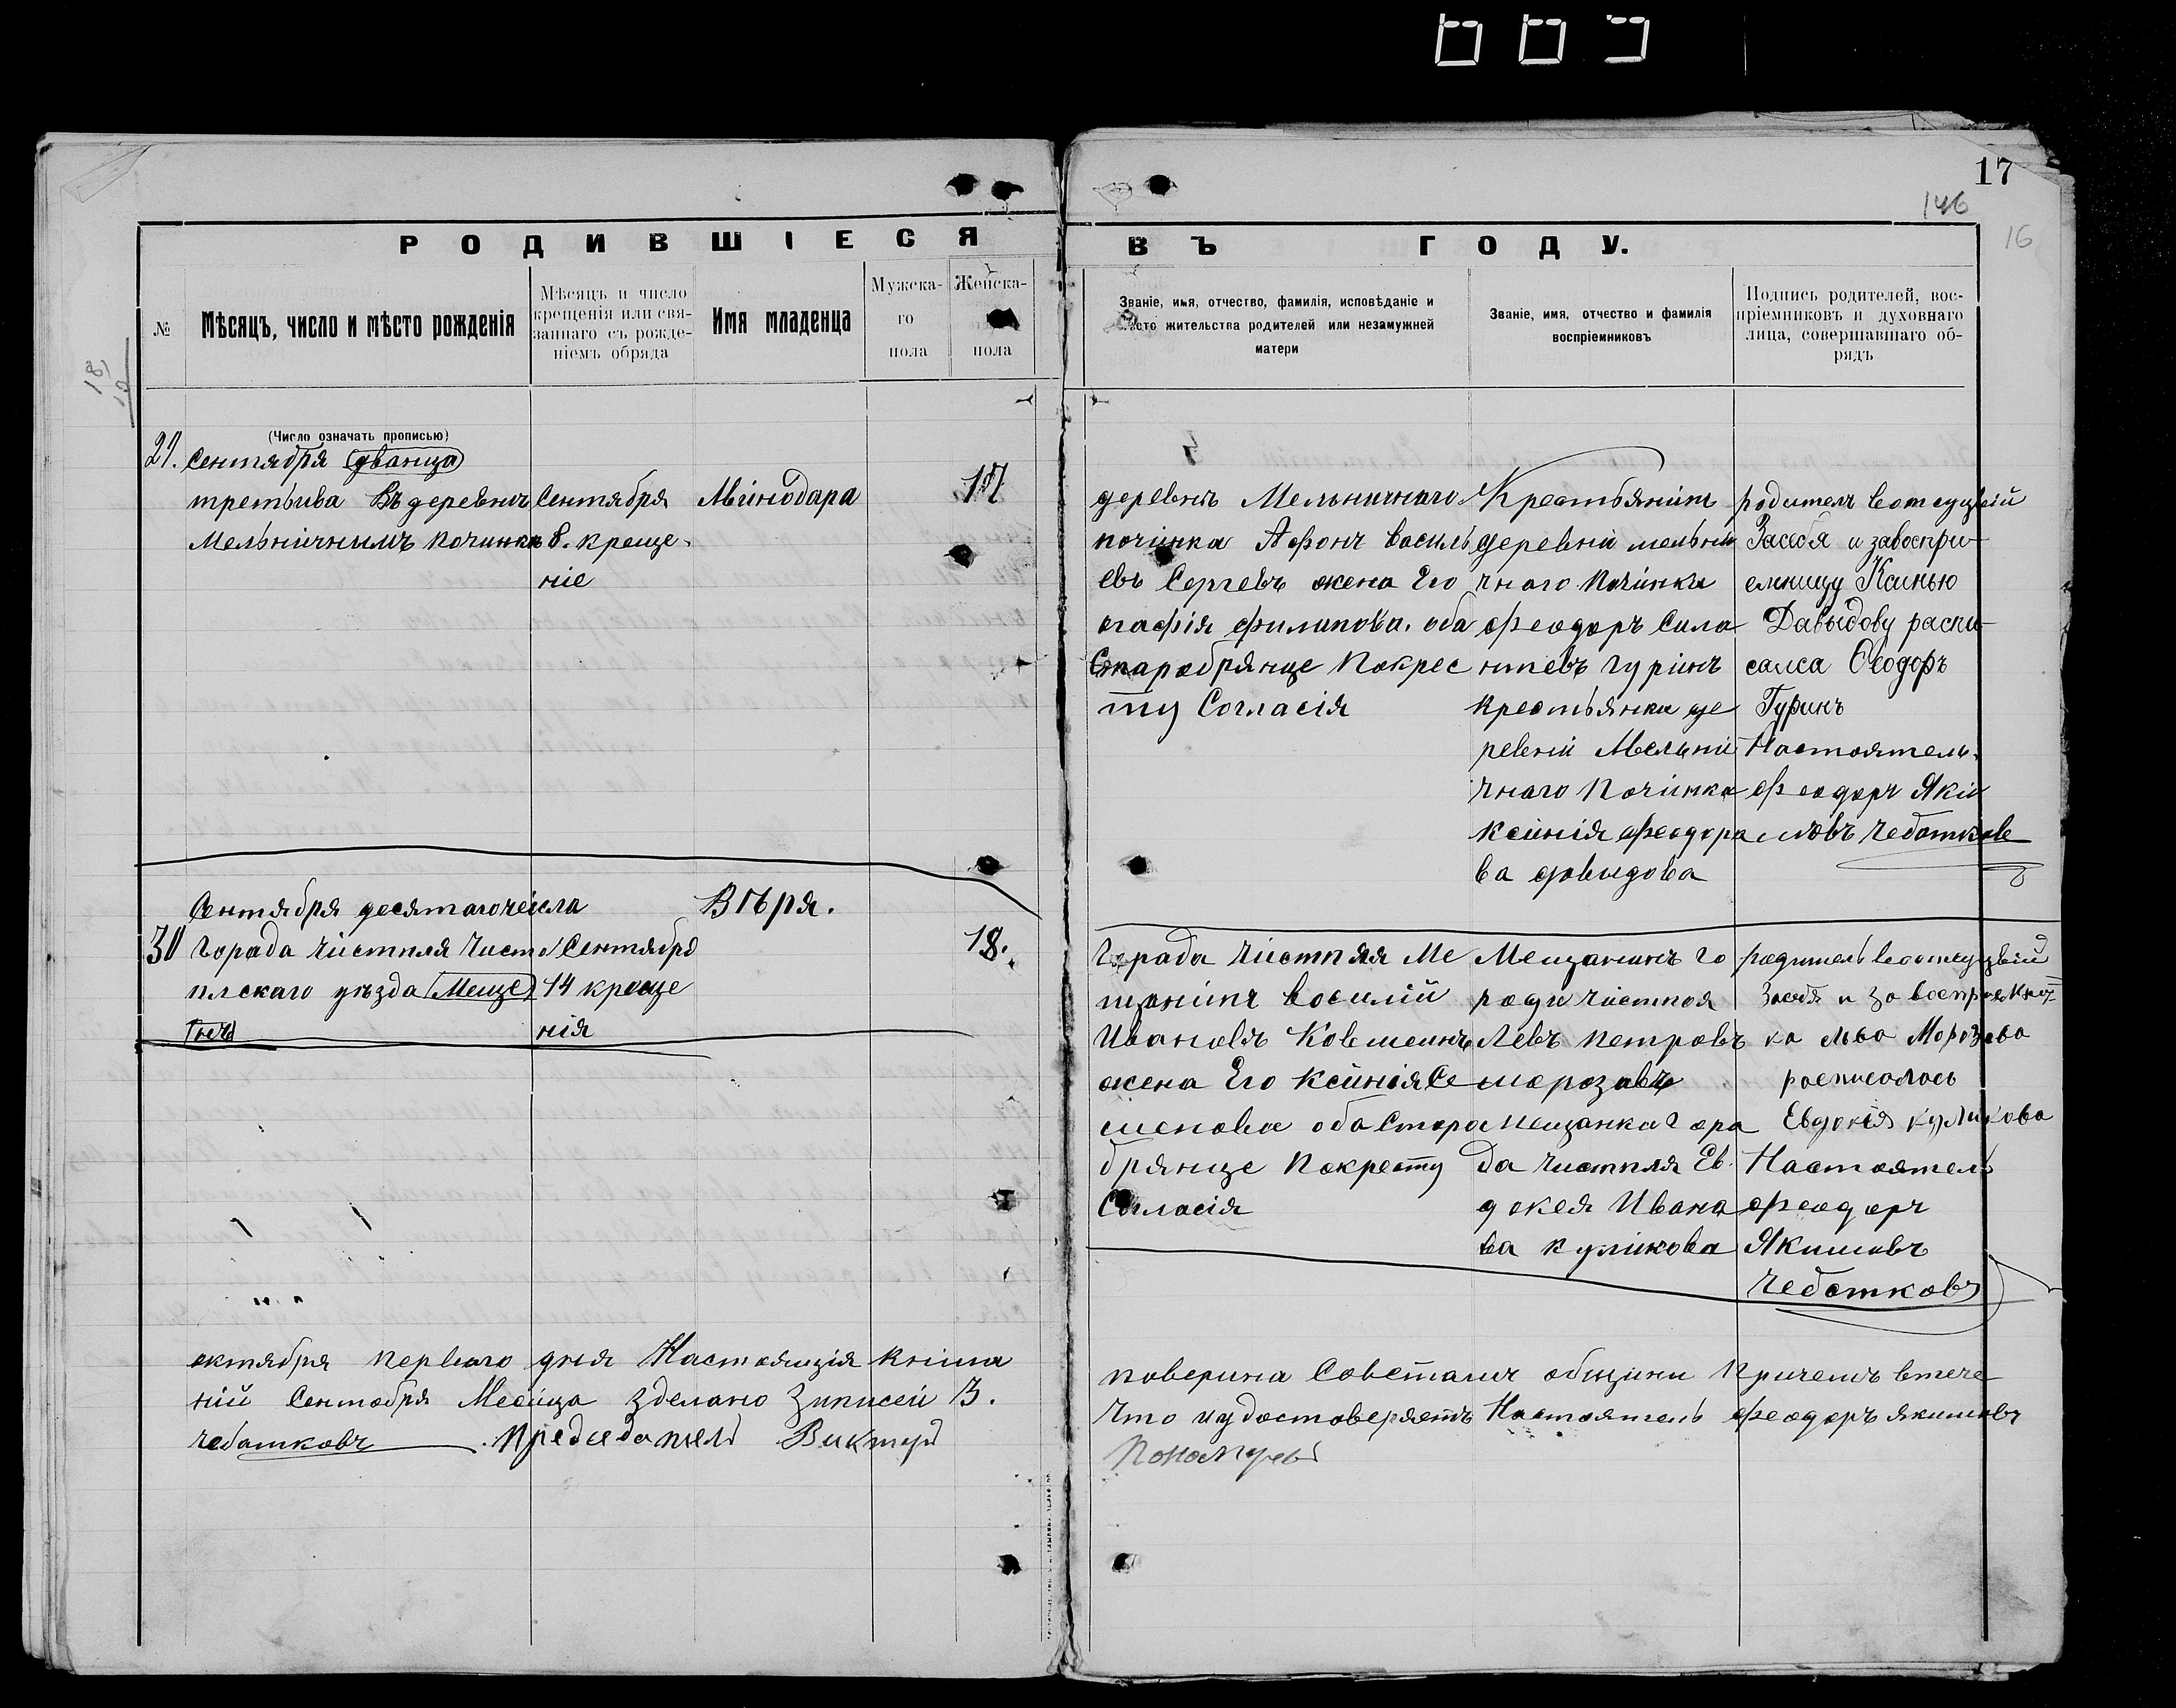 17
146
16
РОДИВШІЕСЯ
ВЪ ГОДУ.
№
Мѣсяцъ, число и мѣсто рожденія
Мѣсяцъ и число
крещенія или свя-
заннаго съ рожде-
ніемъ обряда
Имя младенца
Мужска-
го
пола
Женска-
пола
Званіе, имя, отчество, фамилія, исповѣданіе и
мѣсто жительства родителей или незамужней
матери
Званіе, имя, отчество и фамилія
воспріемниковъ
Подпись родителей, вос-
пріемниковъ и духовнаго
лица, совершавшаго об-
рядъ
18
(Число означать прописью)
сентября (дванца)
третьива Въ деревнѣ
Мельничнымъ починкѣ
Сентября
8. креще-
ніе
Минодара
17
деревнѣ Мельничнаго
починка Афонъ василь
евъ Сергевъ жена Его
агафія филипова. оба
Старобрянце Покрес
ту Согласія
Крестьянинъ
деревни мельни
чнаго Починка
феодоръ Сила
нтевъ гуринъ
крестьянка де
ревни Мельни
чнаго Починка
ксинія феодора
ва довыдова
родителъ вотсуцвій
Засебя и завоспри-
емницу Ксинью
Давыдову распи-
салса Ѳеодоръ
Гуринъ
Настоятель
феодоръ Яки
мовъ Чеботкове
Сентября десятагочисла
30 Города чистпля Чисто
плскаго уѣзда (Меще)
Сентября
14 креще
нія
Вѣря.
18.
Города чистпля Ме
щанинъ восилій
Ивановъ Ковшеинъ
жена Его ксинія Се
менова оба Старо
брянце Покресту
Согласія
Мещанинъ го
роди чистпоя
Левъ петровъ
морозавъ
мещанка гора
да чистпля Ев.
докея Ивана
ва куликова
родитель вотсуцвій
Засебя и за воспріемни
ка льва Морозова
росписолось
Евдокія куликова
Настоятель
феодоръ
Якимовъ
Чеботковъ
октября перваго дня Настоящія книга
ній Сентября Месяца зделано записей 3.
чеботковъ Председатель Виктуръ
поверина Советамъ общини Причемъ втече
что и удостоверяетъ Настоятель феодоръ якимовъ